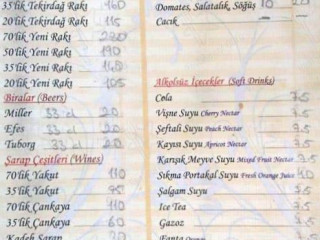 35'lik Tekirdağ Rakı 160
20'lik Tekirdağ Rakı 115
70'lik Yeni Rakı 220
50'lik Yeni Rakı 190
35'lik Yeni Rakı 140
20'lik Yeni Rakı 105
Biralar (Beers)
Miller 33 cl 20
Efes 33 cl 20
Tuborg 33 cl 20
Şarap Çeşitleri (Wines)
70'lik Yakut 110
35'lik Yakut
70'lik Çankaya 110
35'lik Çankaya 60
Kadeh Şarap 20
Domates, Salatalık, Söğüş 10 20
Cacık
Alkolsüz İçecekler (Soft Drinks)
Cola 7.5
Vişne Suyu Cherry Nectar 7.5
Şeftali Suyu Peach Nectar 7.5
Kayısı Suyu Apricot Nectar 7.5
Karışık Meyve Suyu Mixed Fruit Nectar 7.5
Sıkma Portakal Suyu Fresh Orange Juice
Şalgam Suyu 7.5
Ice Tea 7.5
Gazoz 7.5
Fanta